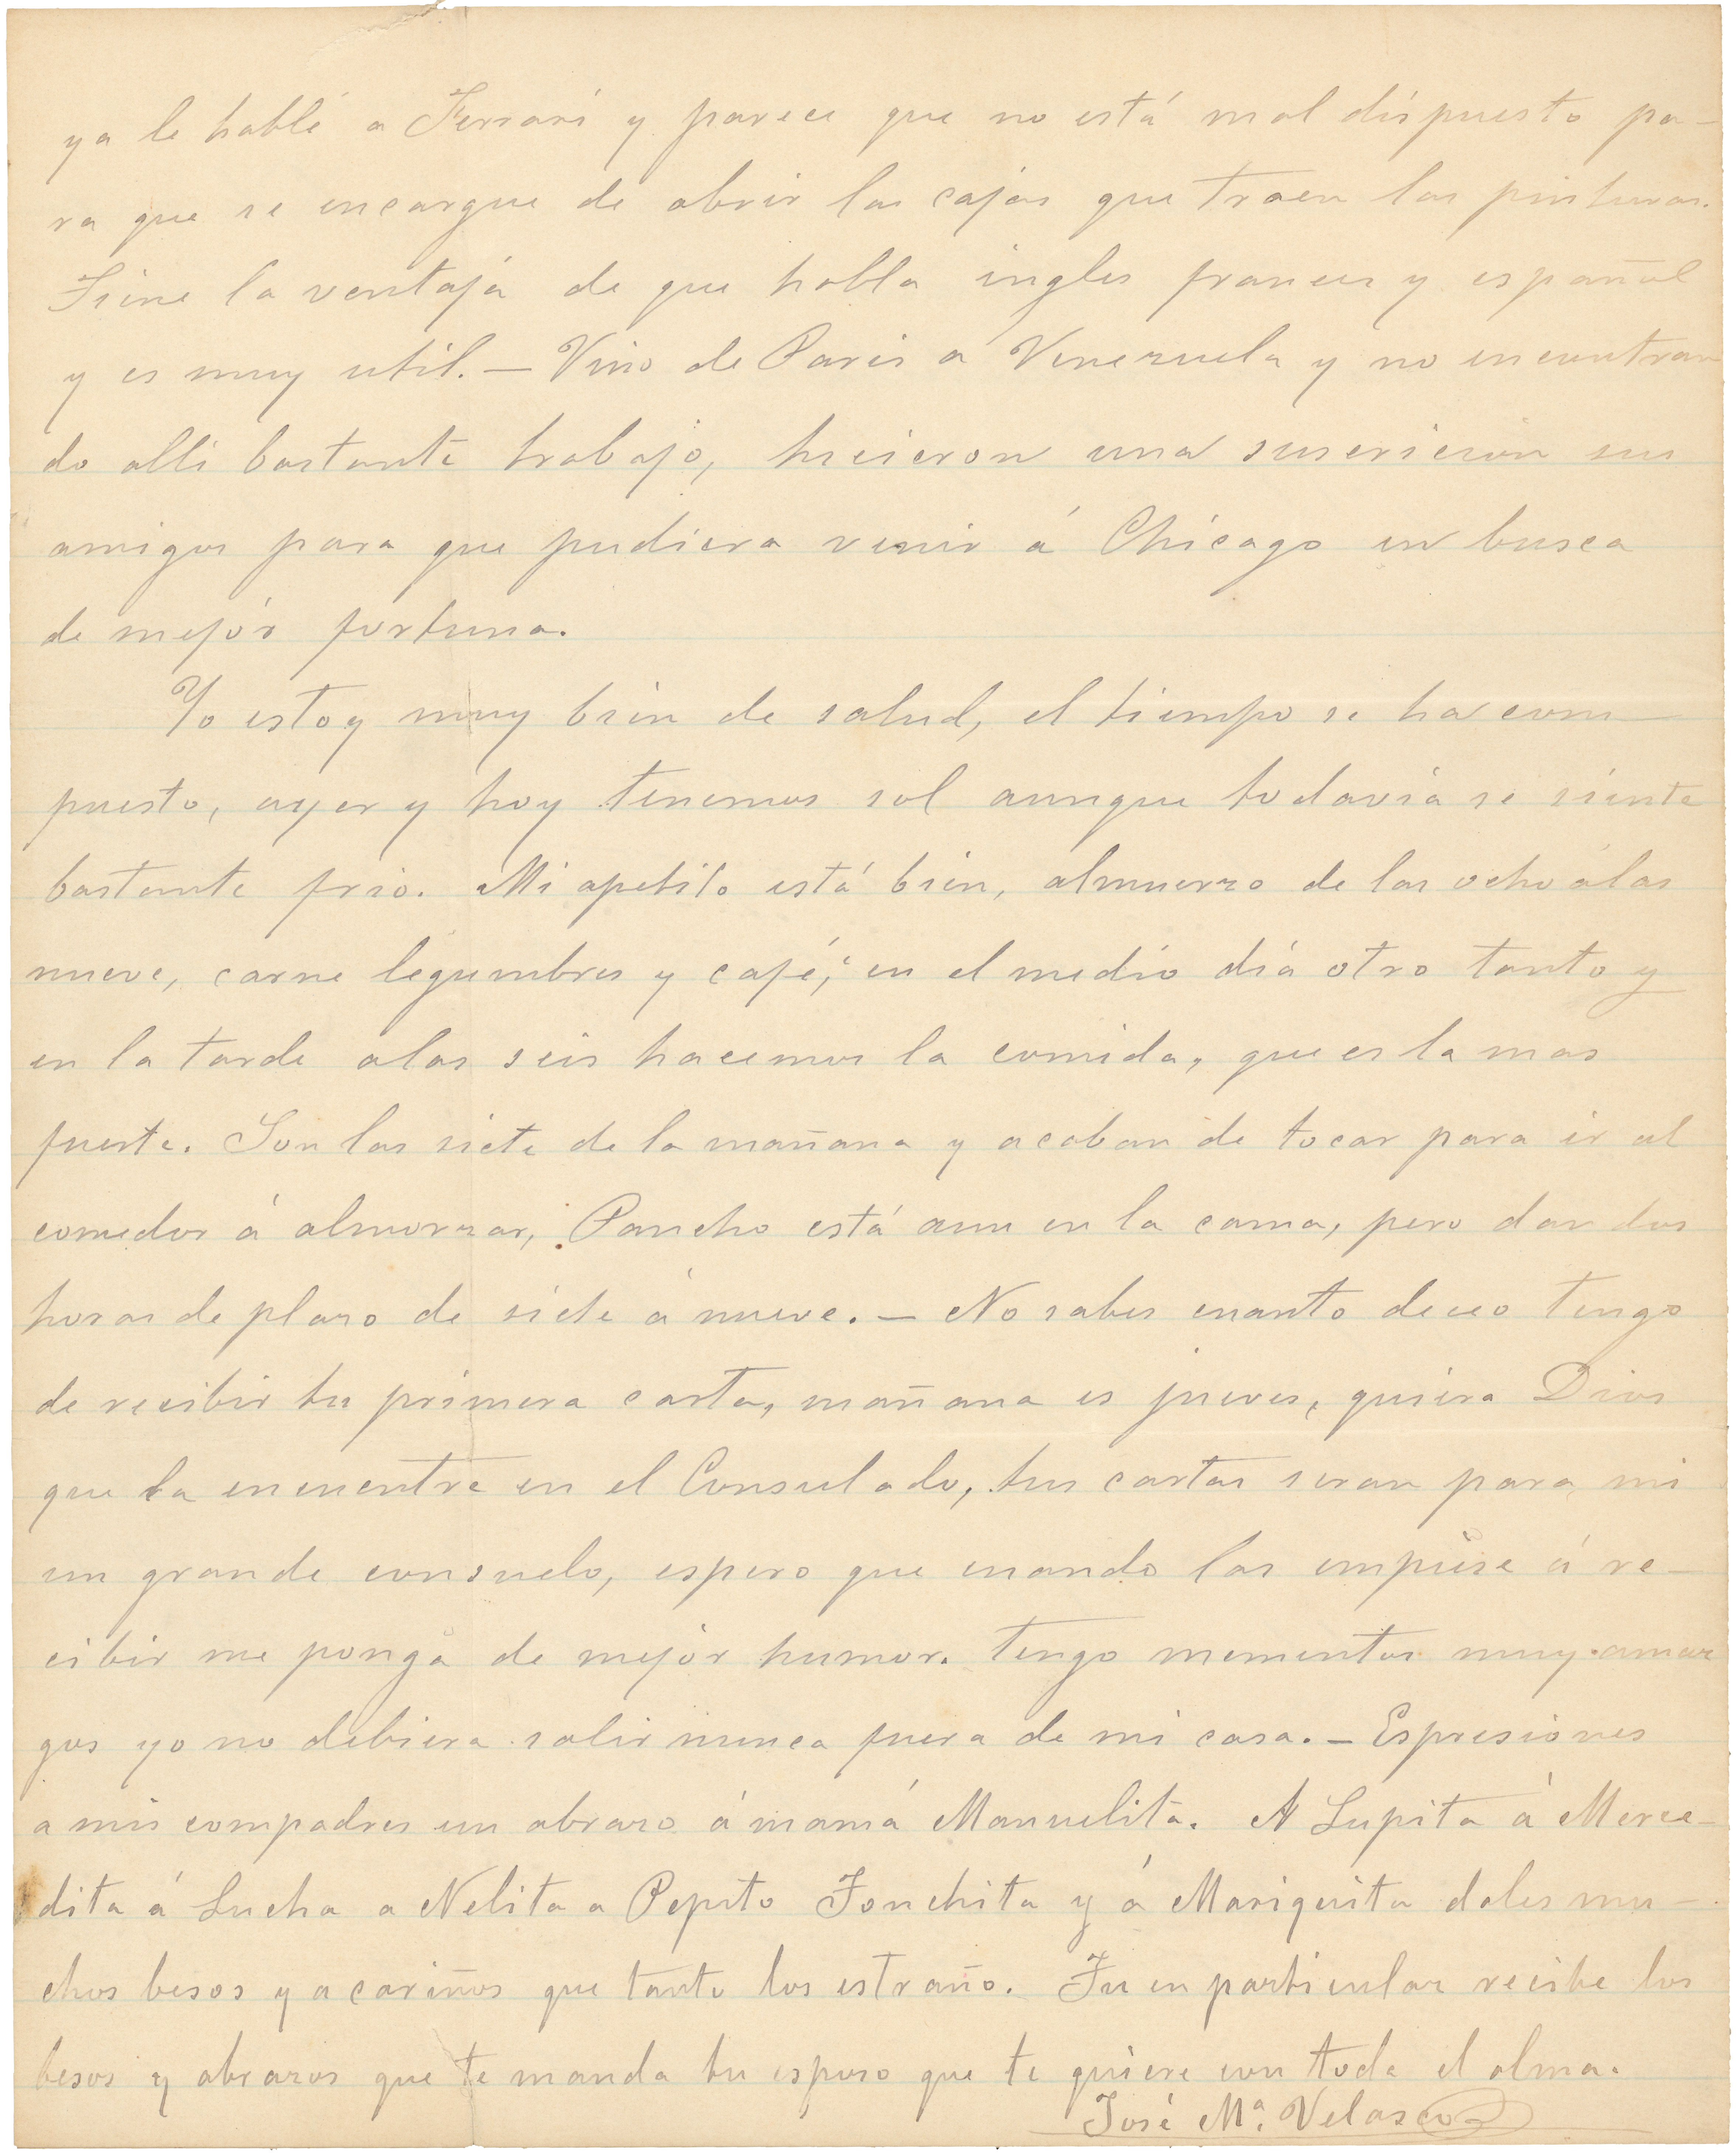 ya le hablé a Ferrari y parece que no está mal dispuesto pa-
ra que se encargue de abrir las cajas que traen las pinturas.
Tiene la ventaja de que habla ingles frances y español
y es muy util. — Vino de Paris a Venezuela y no encontran
do alli bastante trabajo, hicieron una suscricion sus
amigos para que pudiera venir á Chicago en busca
de mejor fortuna.
Yo estoy muy bien de salud, el tiempo se ha com-
puesto, ayer y hoy tenemos sol aunque todavia se siente
bastante frio. Mi apetito está bien, almuerzo de las ocho á las
nueve, carne legumbres y café; en el medio dia otro tanto y
en la tarde a las seis hacemos la comida, que es la mas
fuerte. Son las siete de la mañana y acaban de tocar para ir al
comedor á almorzar, Pancho está aun en la cama, pero dan dos
horas de plazo de siete á nueve. — No sabes cuanto deceo tengo
de recibir tu primera carta, mañana es jueves, quiera Dios
que la encuentre en el Consulado, tus cartas seran para mi
un grande consuelo, espero que cuando las empiese á re-
cibir me ponga de mejor humor. tengo momentos muy amar
gos yo no debiera salir nunca fuera de mi casa. — Espresiones
a mis compadres un abrazo á mamá Manuelita. A Lupita á Merce-
dita á Lucha a Nelita a Pepito Tonchita y á Mariquita dales mu-
chos besos y a cariños que tanto los estraño. Tu en particular recibe los
besos y abrazos que te manda tu esposo que te quiere con toda el alma.
José Mª. Velasco